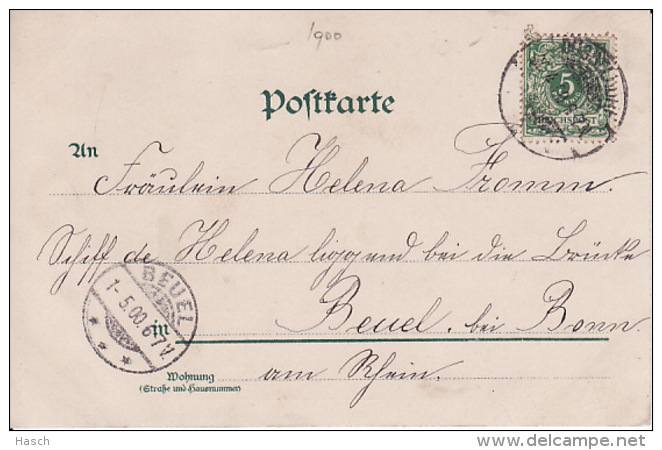 1900
Postkarte
5
REICHSPOST
An
Fräulein Helena Fromm.
Schiff de Helena liggend bei die Brücke
Beuel. bei Bonn.
in
am Rhein.
Wohnung
(Straße und Hausnummer)
BEUEL
1-5.00.6-7V.
Hasch
www.delcampe.net